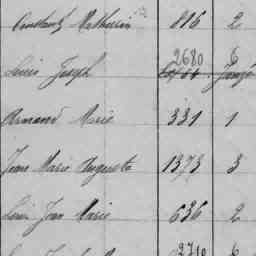 Constant Mathurin 886 2
2680 6
Louis Joseph Janzé
Armand Marie 331 1
Jean Marie Auguste 1373 3
Louis Jean Marie 636 2
2710 6